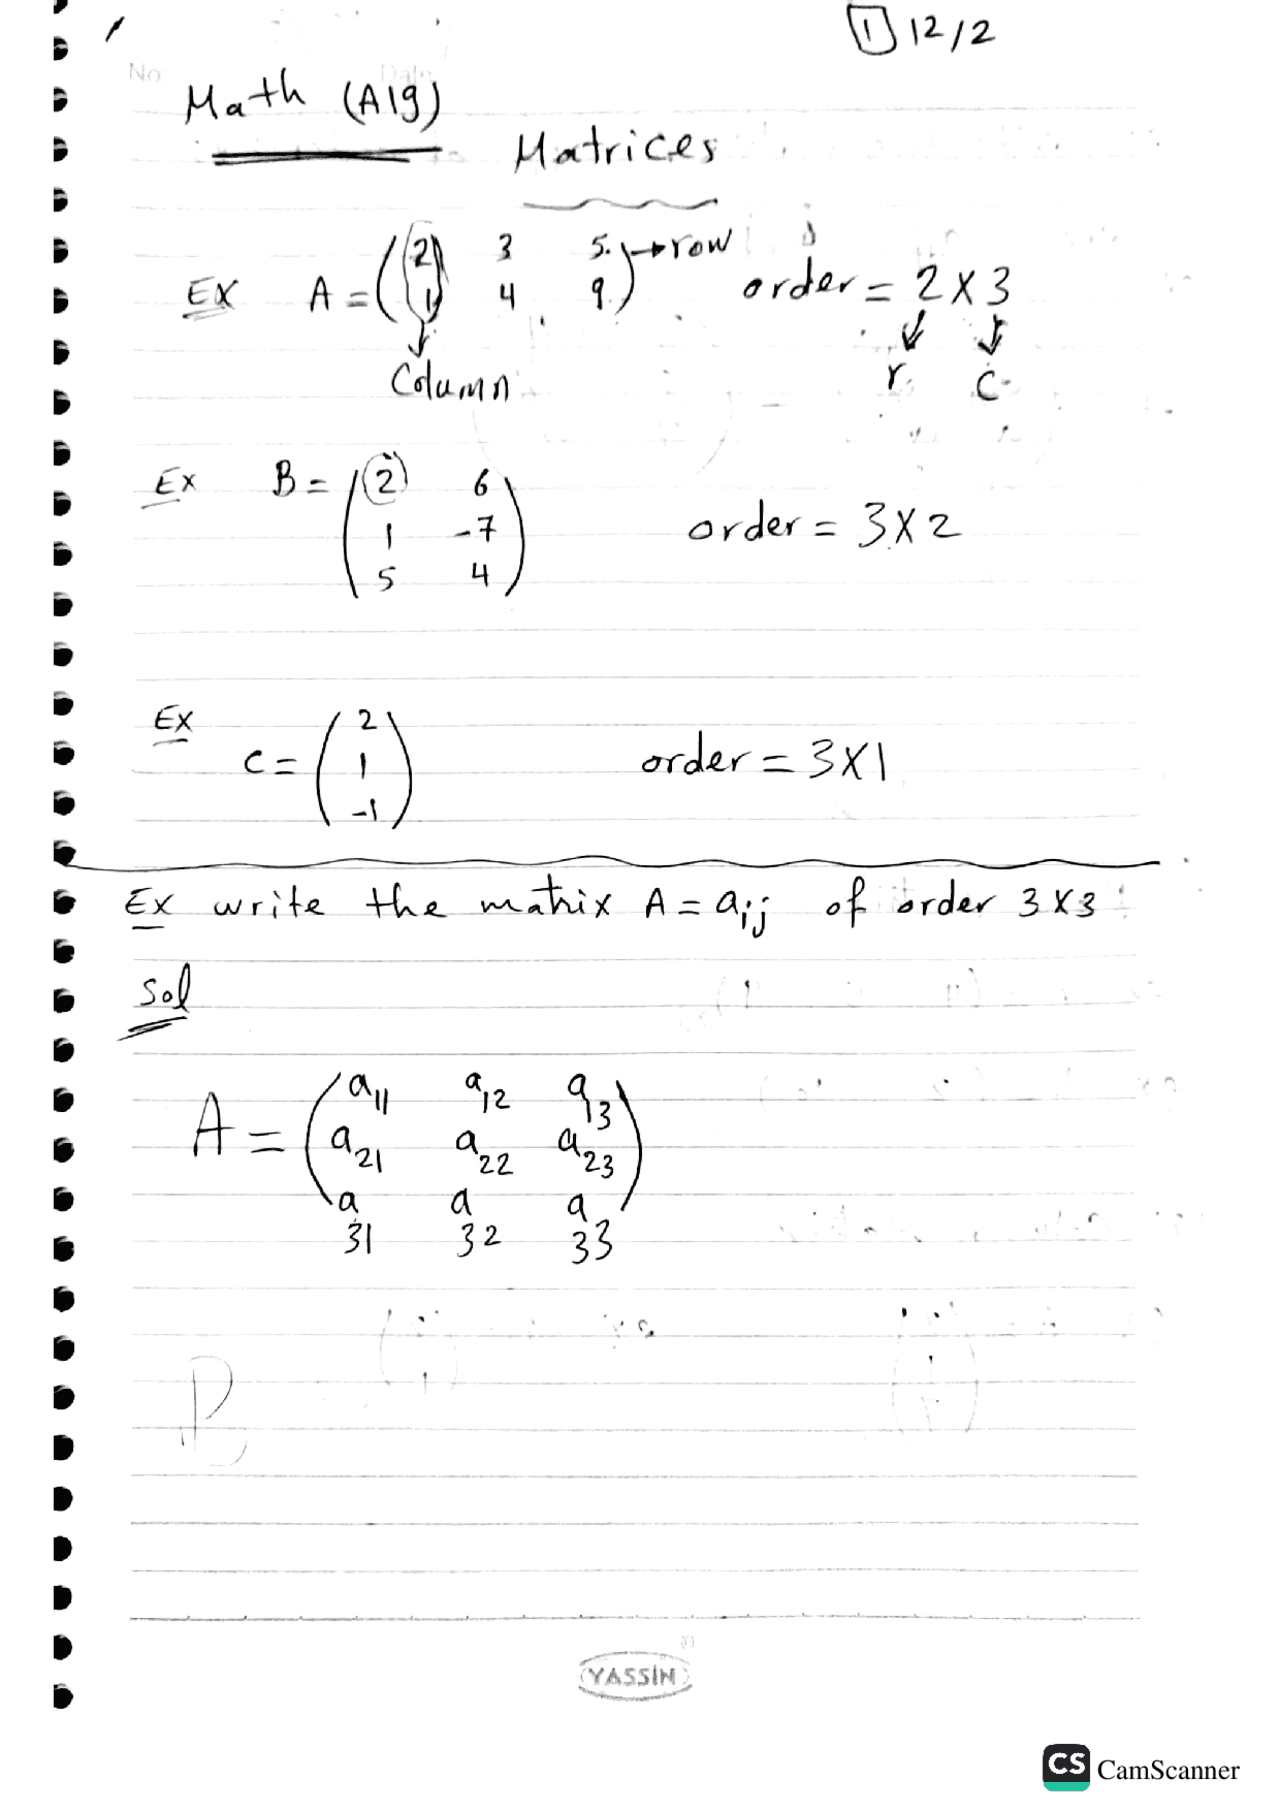 1 12/2
No: Date
Math (Alg)
Matrices
Ex A = (2 3 5 → row order = 2 X 3
1 4 9)
Column r c
Ex B = (2 6
1 -7 order = 3 X 2
5 4)
Ex
C = (2
1 order = 3 X 1
-1)
Ex write the matrix A = aij of order 3 X 3
Sol
A = (a11 a12 a13
a21 a22 a23
a31 a32 a33)
YASSIN
CS CamScanner